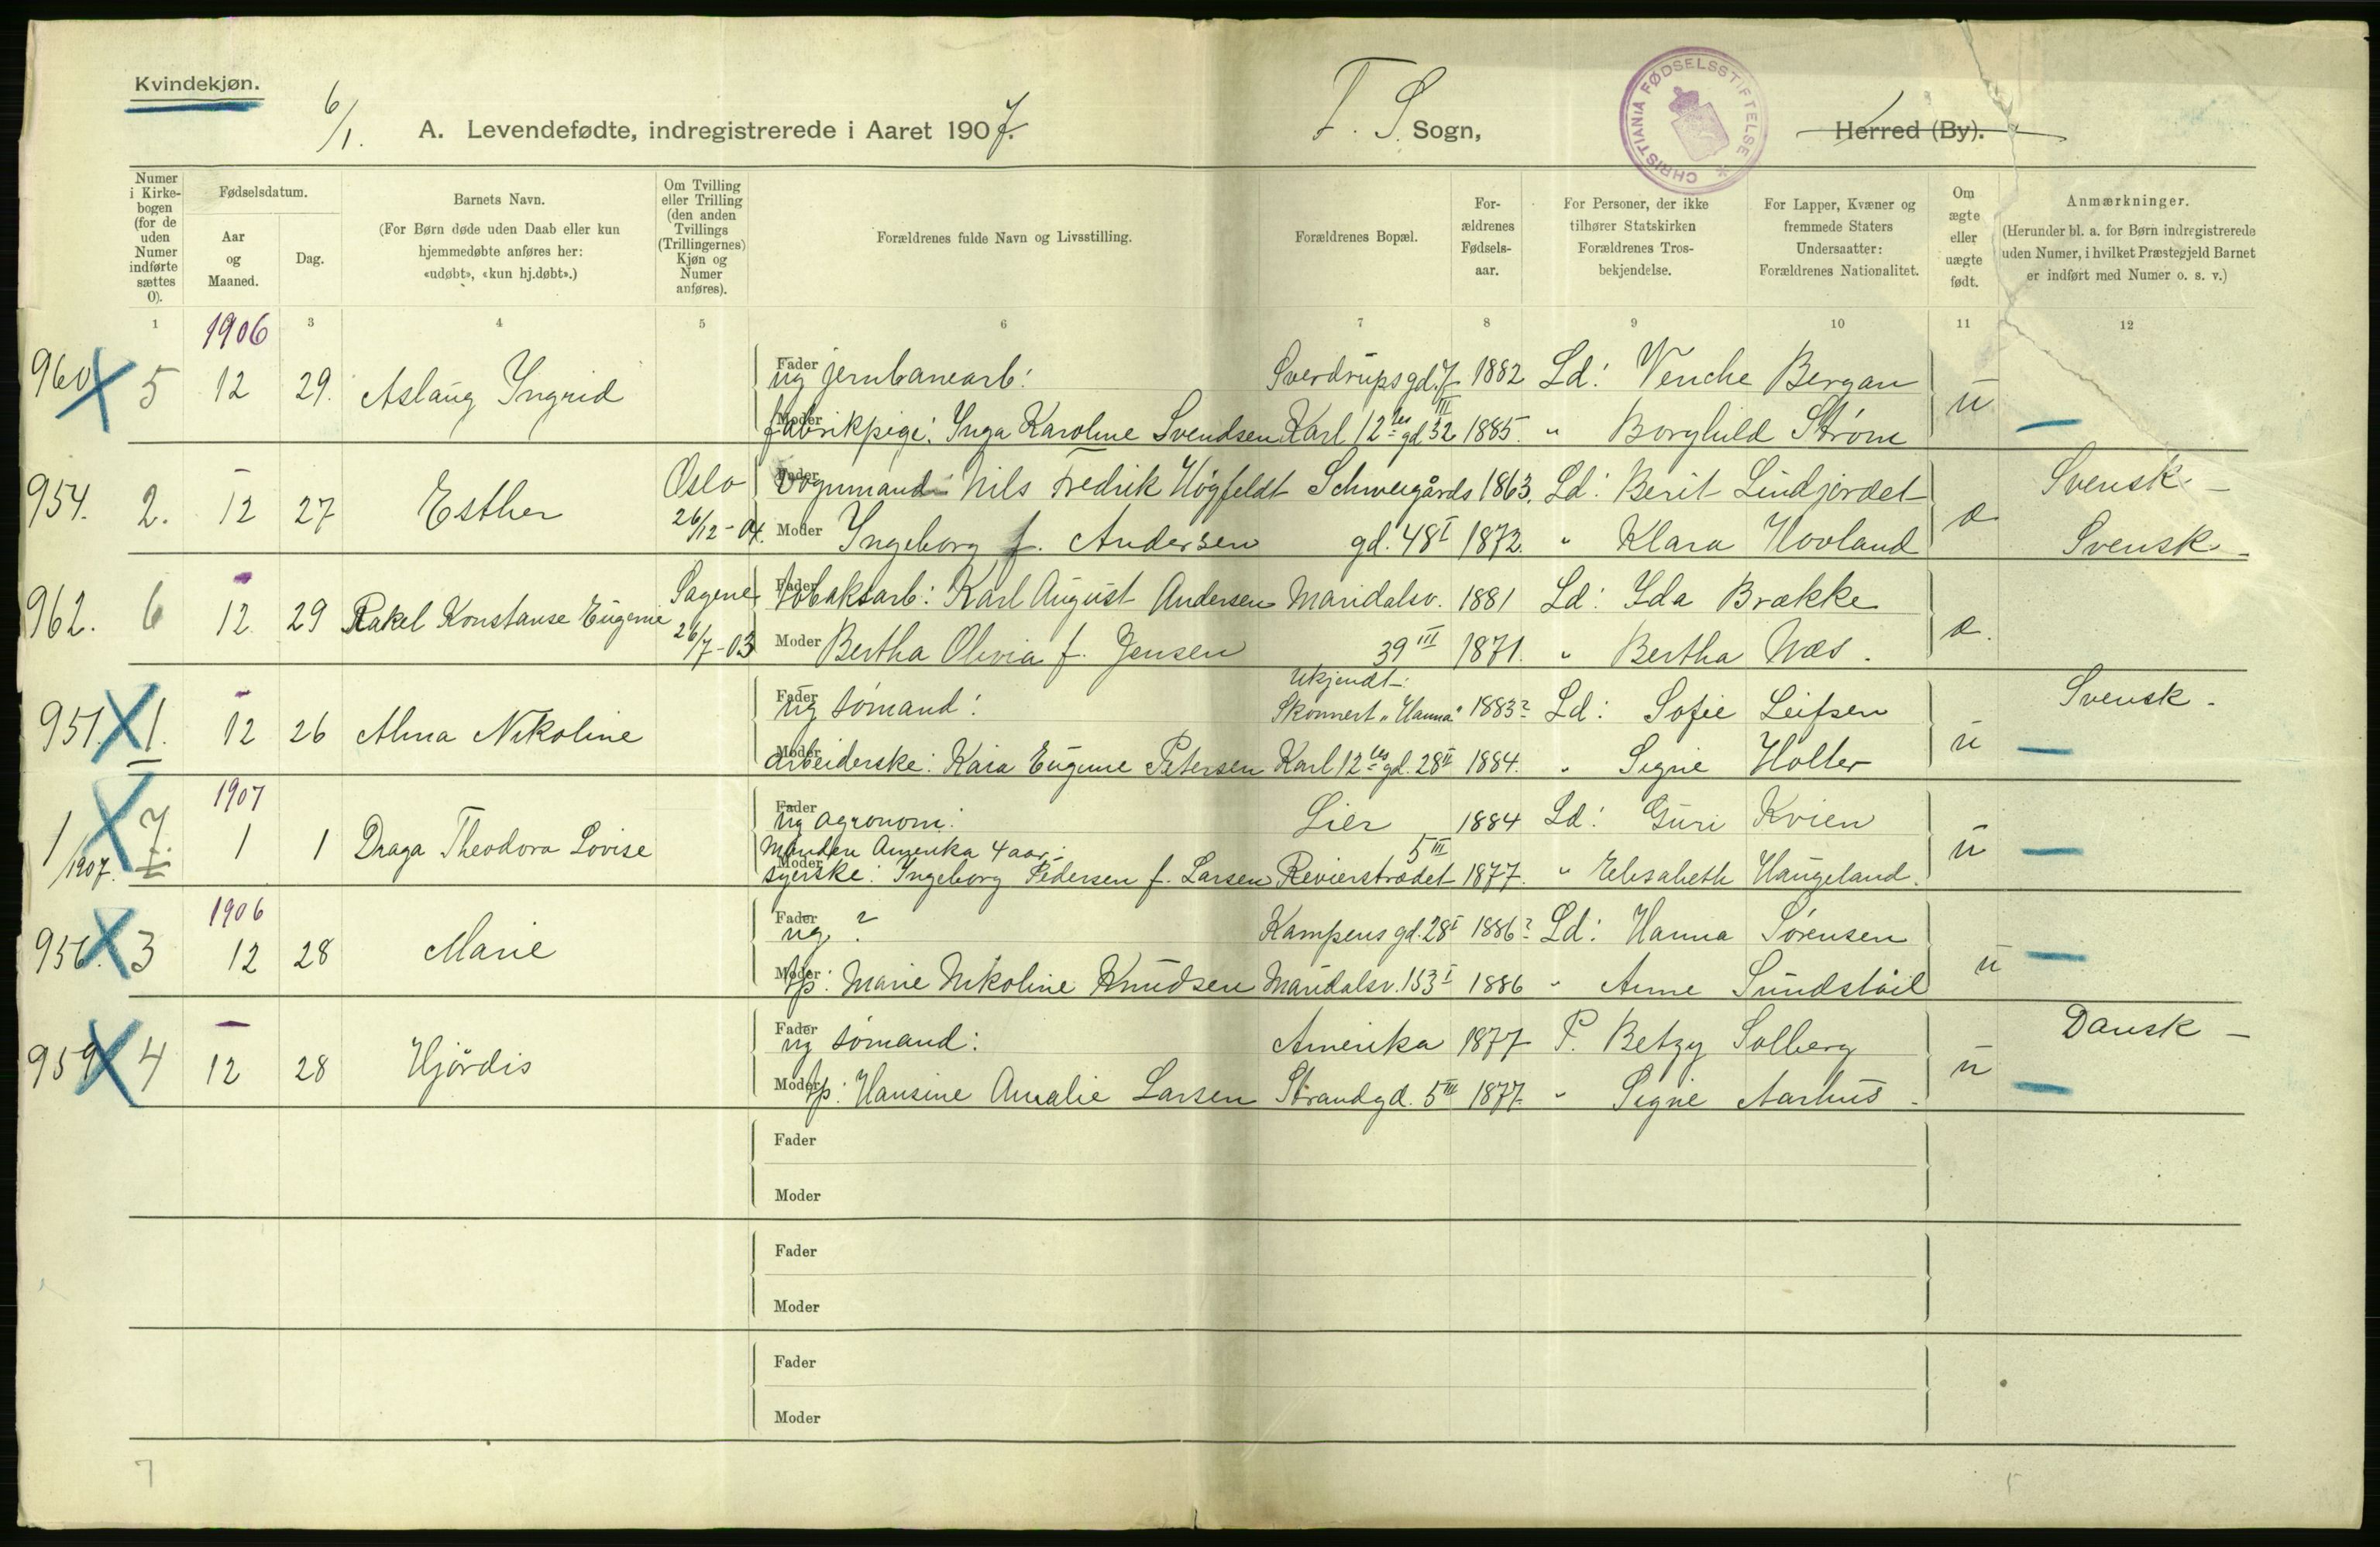 Kvindekjøn.
6/1.
A. Levendefødte, indregistrerede i Aaret 1907.
F. S. Sogn,
Herred (By).
CHRISTIANIA FØDSELSSTIFTELSE
Numer i Kirkebogen (for de uden Numer indførte sættes 0).
Fødselsdatum.
Aar og Maaned.
Dag.
Barnets Navn.
(For Børn døde uden Daab eller kun hjemmedøbte anføres her: «udøbt», «kun hj.døbt».)
Om Tvilling eller Trilling (den anden Tvillings (Trillingernes) Kjøn og Numer anføres).
Forældrenes fulde Navn og Livsstilling.
Forældrenes Bopæl.
Forældrenes Fødselsaar.
For Personer, der ikke tilhører Statskirken Forældrenes Trosbekjendelse.
For Lapper, Kvæner og fremmede Staters Undersaatter: Forældrenes Nationalitet.
Om ægte eller uægte født.
Anmærkninger.
(Herunder bl. a. for Børn indregistrerede uden Numer, i hvilket Præstegjeld Barnet er indført med Numer o. s. v.)
1 1906 3 4 5 6 7 8 9 10 11 12
960 5 12 29. Aslaug Yngrid Fader ug jernbanearb: Sverdrupsgd. 7 1882 Ld: Venche Bergan u
Moder fabrikpige: Inga Karoline Svendsen Karl 12tes gd 32 III 1885. " Borghild Strøm —
954. 2. 12 27 Esther Oslo Fader Vognmand Nils Fredrik Högfeldt Schweigårds 1863. Ld: Berit Lindjordet Svensk. —
26/12-04. Moder Ingeborg f. Andersen gd. 48 I 1872. " Klara Hovland æ Svensk. —
962. 6 12 29 Rakel Konstanse Eugenie Sagene Fader Tobaksarb: Karl August Andersen Maridalsv. 1881 Ld: Ida Brække
26/7-03 Moder Bertha Olivia f. Jensen 39 III 1871. " Bertha Næs. æ.
Ukjendt.
951. 1. 12 26 Alma Nikoline Fader ug sömand: Skonnert "Hanna" 1883? Ld: Sofie Leifsen Svensk.
Moder Arbeiderske: Kaia Eugenie Petersen Karl 12tes gd. 28 II 1884. " Signe Holter u —
1907
1/1907. 7. 1 1 Draga Theodora Lovise Fader ug agronom: Lier 1884 Ld: Guri Kvien u —
Manden Amerika 4 aar. 5 III
Moder syerske: Ingeborg Pedersen f. Larsen Revierstrædet 1877. " Elisabeth Haugeland.
1906
956. 3 12 28 Marie Fader ug ? Kampens gd. 28 I 1886? Ld: Hanna Sörensen
Moder tp: Marie Nikoline Knudsen Maridalsv. 153 I 1886 " Anne Sundstöil u —
959 4 12 28 Hjördis Fader ug sömand: Amerika 1877 P. Betzy Solberg Dansk —
Moder tp: Hansine Amalie Larsen Strandgd. 5 III 1877. " Signe Aarhus. u —
Fader
Moder
Fader
Moder
Fader
Moder
7